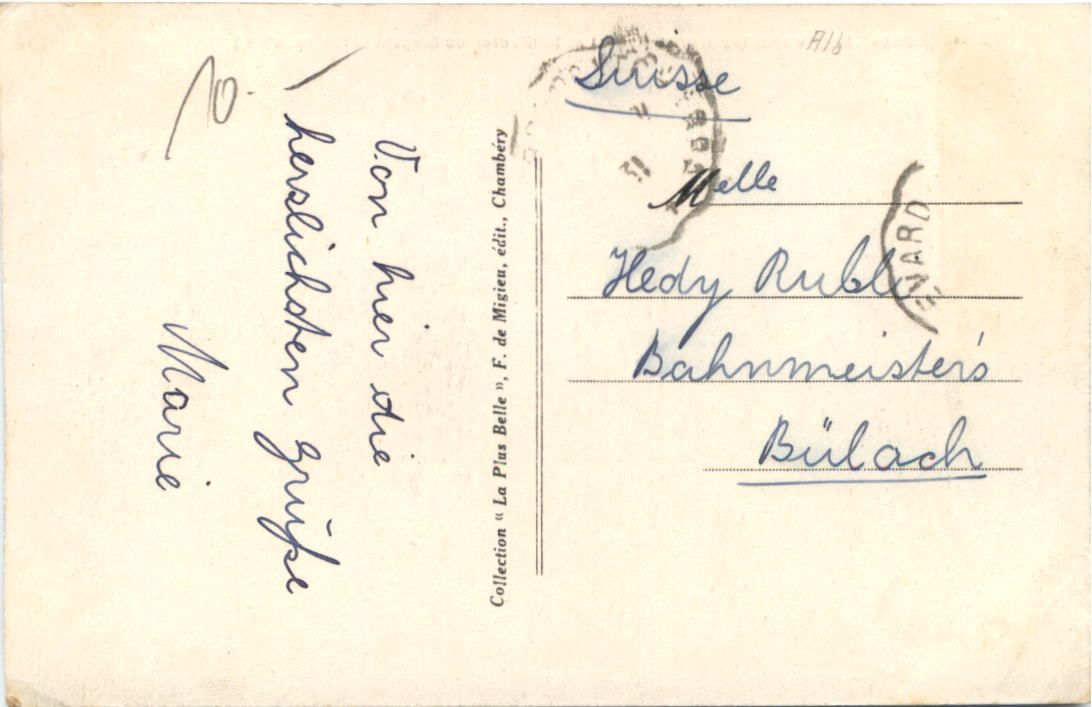 Von hier die
herslichsten grüße
Marie
Collection « La Plus Belle », F. de Migieu, édit., Chambéry
Suisse
Melle
Hedy
Bahnmeister's
Bülach
A1b